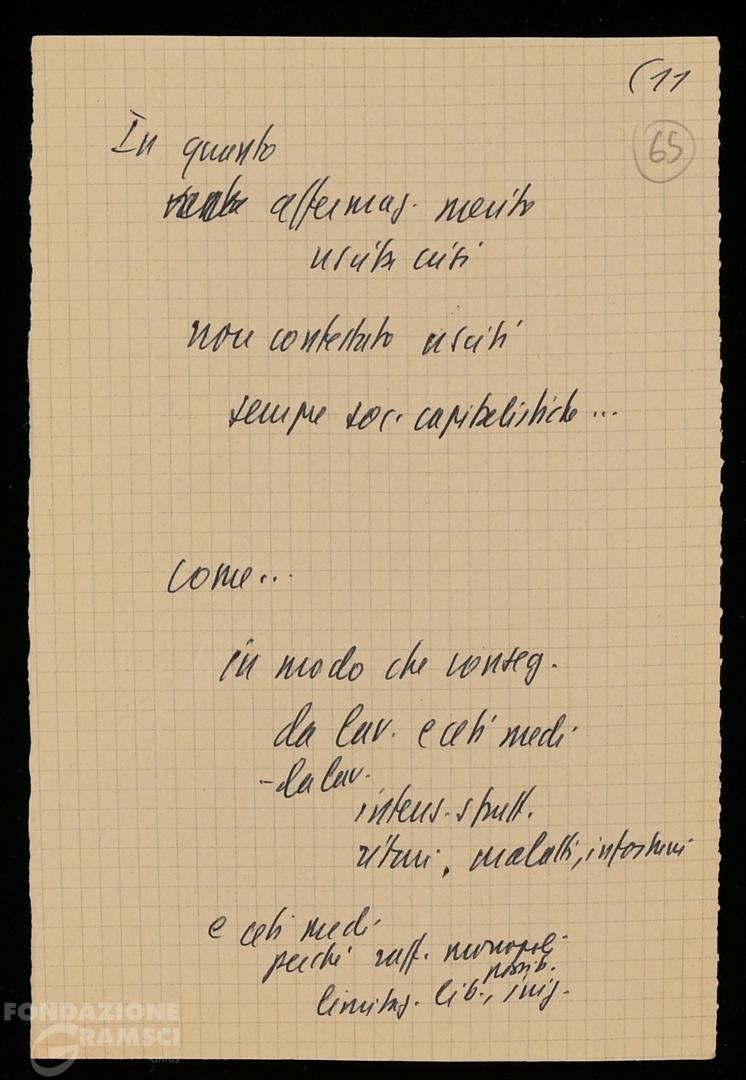 (11
65
In quanto
affermaz. merito
uscita crisi
non contestato usciti
sempre soc. capitalistiche...
come...
in modo che conseg.
da lav. e ceti medi
- da lav.
intens. sfrutt.
ritmi, malatti, infortuni
e ceti medi
perché raff. monopoli
possib.
limitaz. lib., iniz.
FONDAZIONE
GRAMSCI
onlus